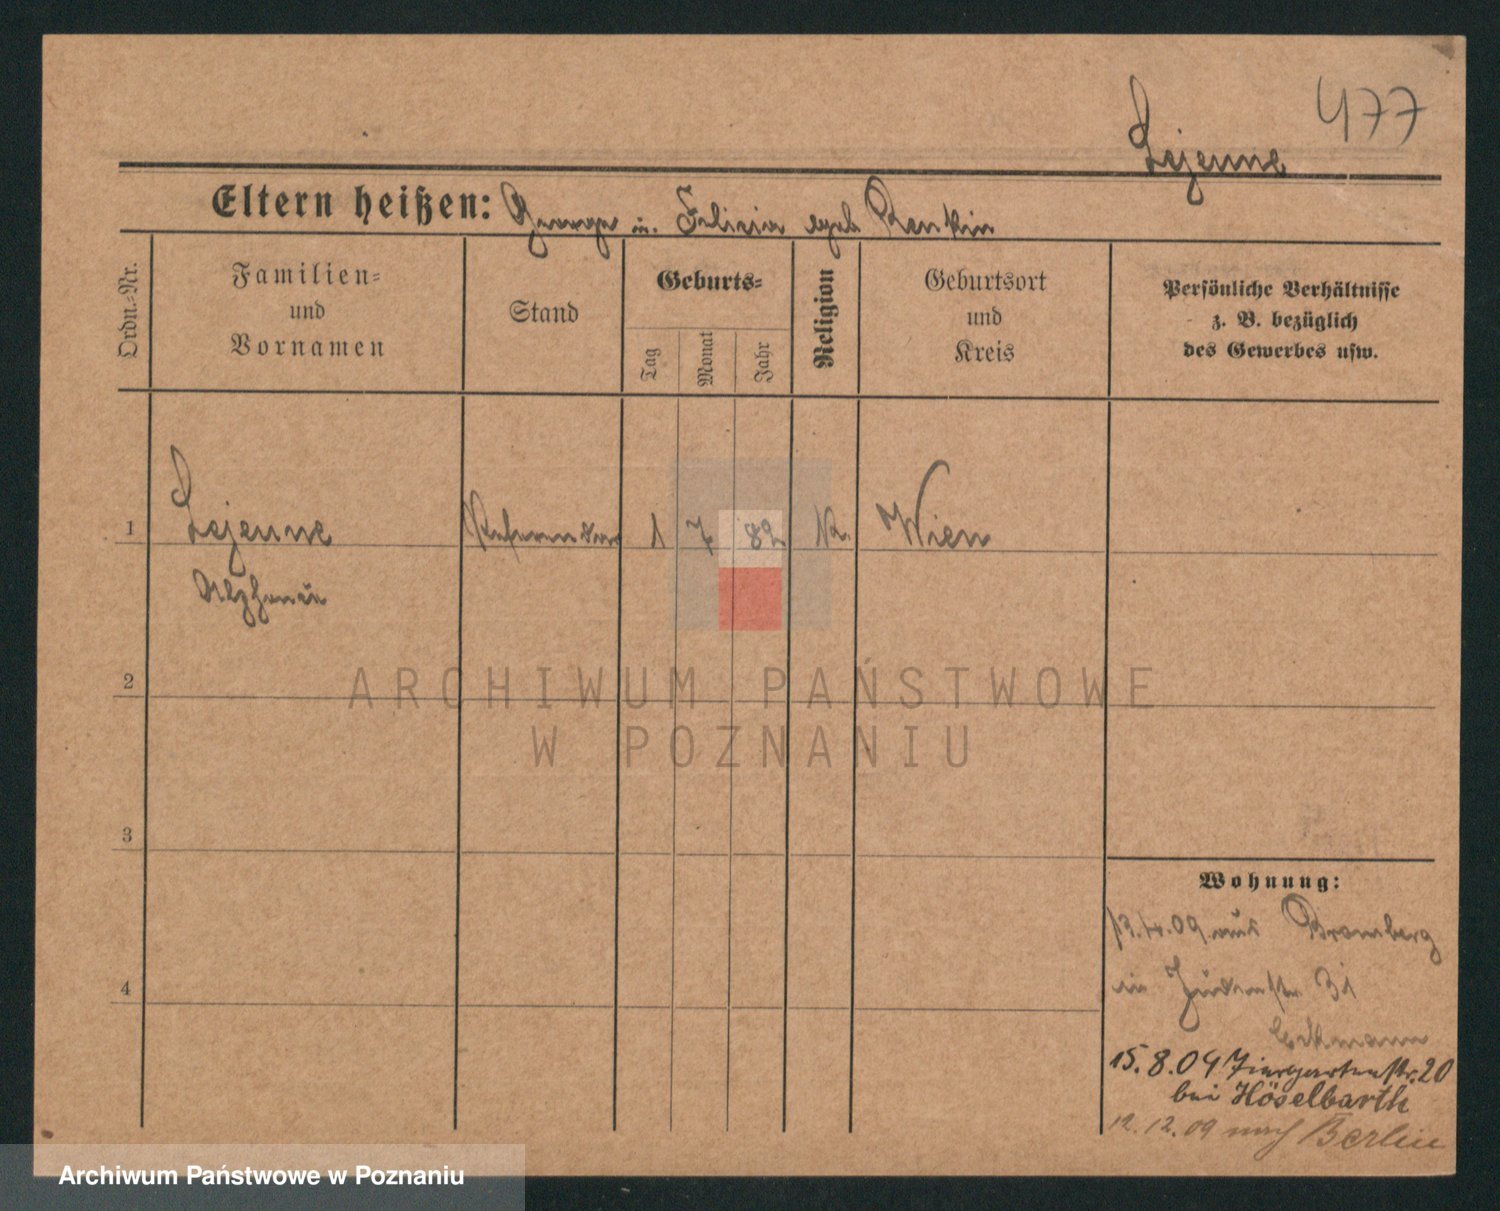 477
Lejeune
Eltern heißen: George u. Felicia geb. Renkin
Ordn.-Nr.
Familien-
und
Vornamen
Stand
Geburts-
Tag
Monat
Jahr
Religion
Geburtsort
und
Kreis
Persönliche Verhältnisse
z. B. bezüglich
des Gewerbes usw.
1 Lejeune Referendar 1 7 82 Wien
2
ARCHIWUM PAŃSTWOWE
W POZNANIU
3
Wohnung:
09 aus Bromberg
in Judenstr 31
4
15.8.09 Tiergartenstr. 20
bei Höselbarth
12.12.09 nach Berlin
Archiwum Państwowe w Poznaniu